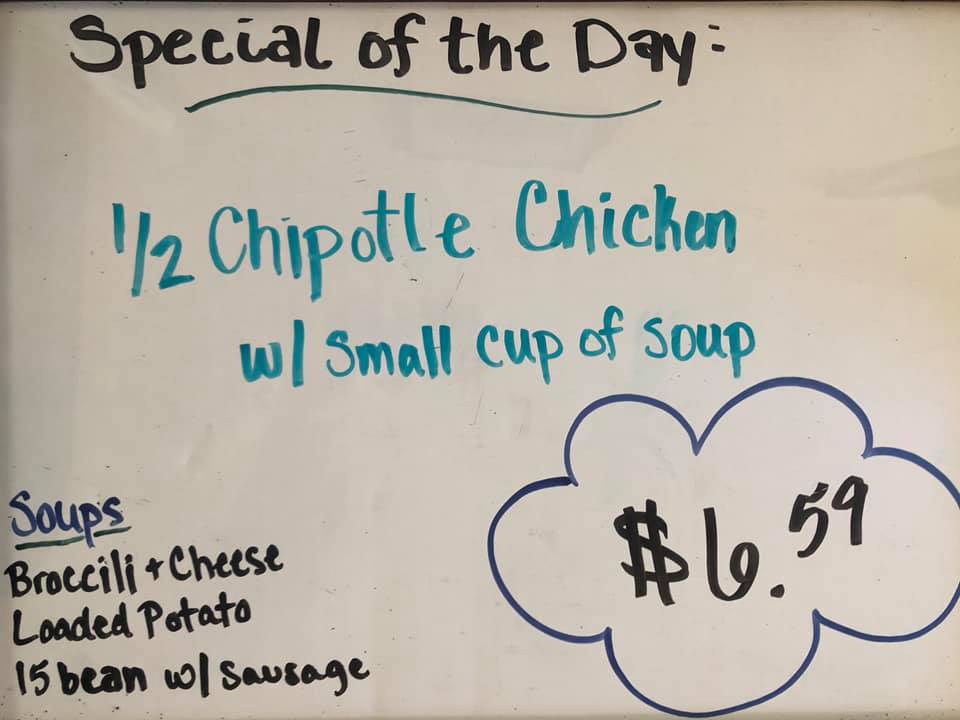 Special of the Day:
1/2 Chipotle Chicken
w/ small cup of soup
Soups
Broccili + Cheese
Loaded Potato
15 bean w/ sausage
$6.59